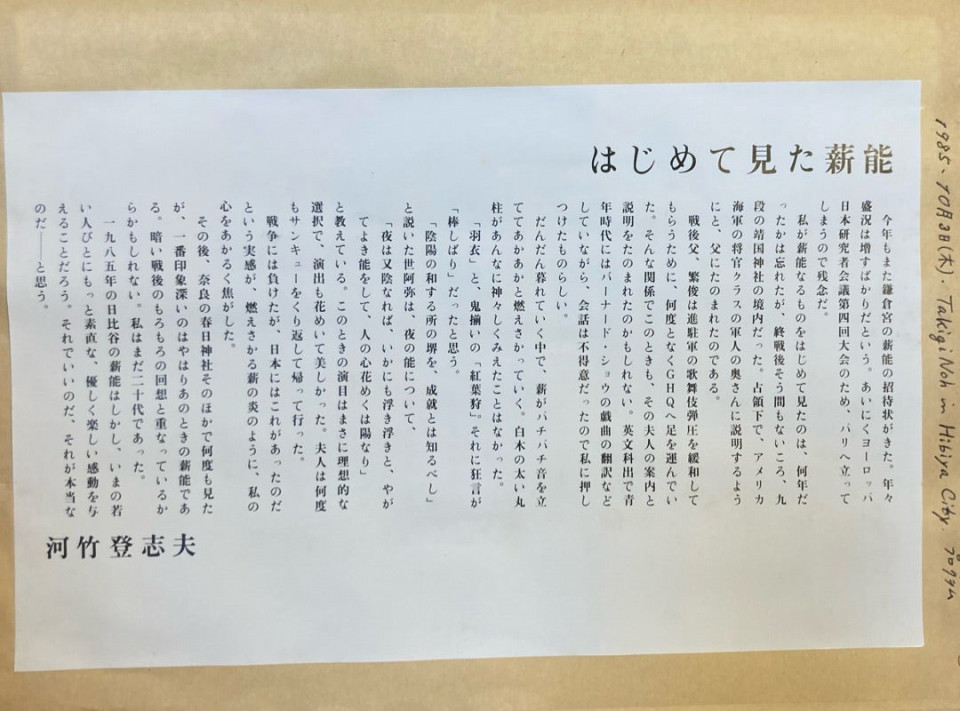 はじめて見た薪能
今年もまた鎌倉宮の薪能の招待状がきた。年々
盛況は増すばかりだという。あいにくヨーロッパ
日本研究者会議第四回大会のため、パリへ立って
しまうので残念だ。
私が薪能なるものをはじめて見たのは、何年だ
ったかは忘れたが、終戦後そう間もないころ、九
段の靖国神社の境内だった。占領下で、アメリカ
海軍の将官クラスの軍人の奥さんに説明するよう
にと、父にたのまれたのである。
戦後父、繁俊は進駐軍の歌舞伎弾圧を緩和して
もらうために、何度となくGHQへ足を運んでい
た。そんな関係でこのときも、その夫人の案内と
説明をたのまれたのかもしれない。英文科出で青
年時代にはバーナード・ショウの戯曲の翻訳など
していながら、会話は不得意だったので私に押し
つけたものらしい。
だんだん暮れていく中で、薪がパチパチ音を立
ててあかあかと燃えさかっていく。白木の太い丸
柱があんなに神々しくみえたことはなかった。
「羽衣」と、鬼揃いの「紅葉狩」。それに狂言が
「棒しばり」だったと思う。
「陰陽の和する所の堺を、成就とは知るべし」
と説いた世阿弥は、夜の能について、
「夜は又陰なれば、いかにも浮き浮きと、やが
てよき能をして、人の心花めくは陽なり」
と教えている。このときの演目はまさに理想的な
選択で、演出も花めいて美しかった。夫人は何度
もサンキューをくり返して帰って行った。
戦争には負けたが、日本にはこれがあったのだ
という実感が、燃えさかる薪の炎のように、私の
心をあかるく焦がした。
その後、奈良の春日神社そのほかで何度も見た
が、一番印象深いのはやはりあのときの薪能であ
る。暗い戦後のもろもろの回想と重なっているか
らかもしれない。私はまだ二十代であった。
一九八五年の日比谷の薪能はしかし、いまの若
い人びとにもっと素直な、優しく楽しい感動を与
えることだろう。それでいいのだ、それが本当な
のだ――と思う。
河竹登志夫
1985、10月3日(木)・Takigi Noh in Hibiya City.